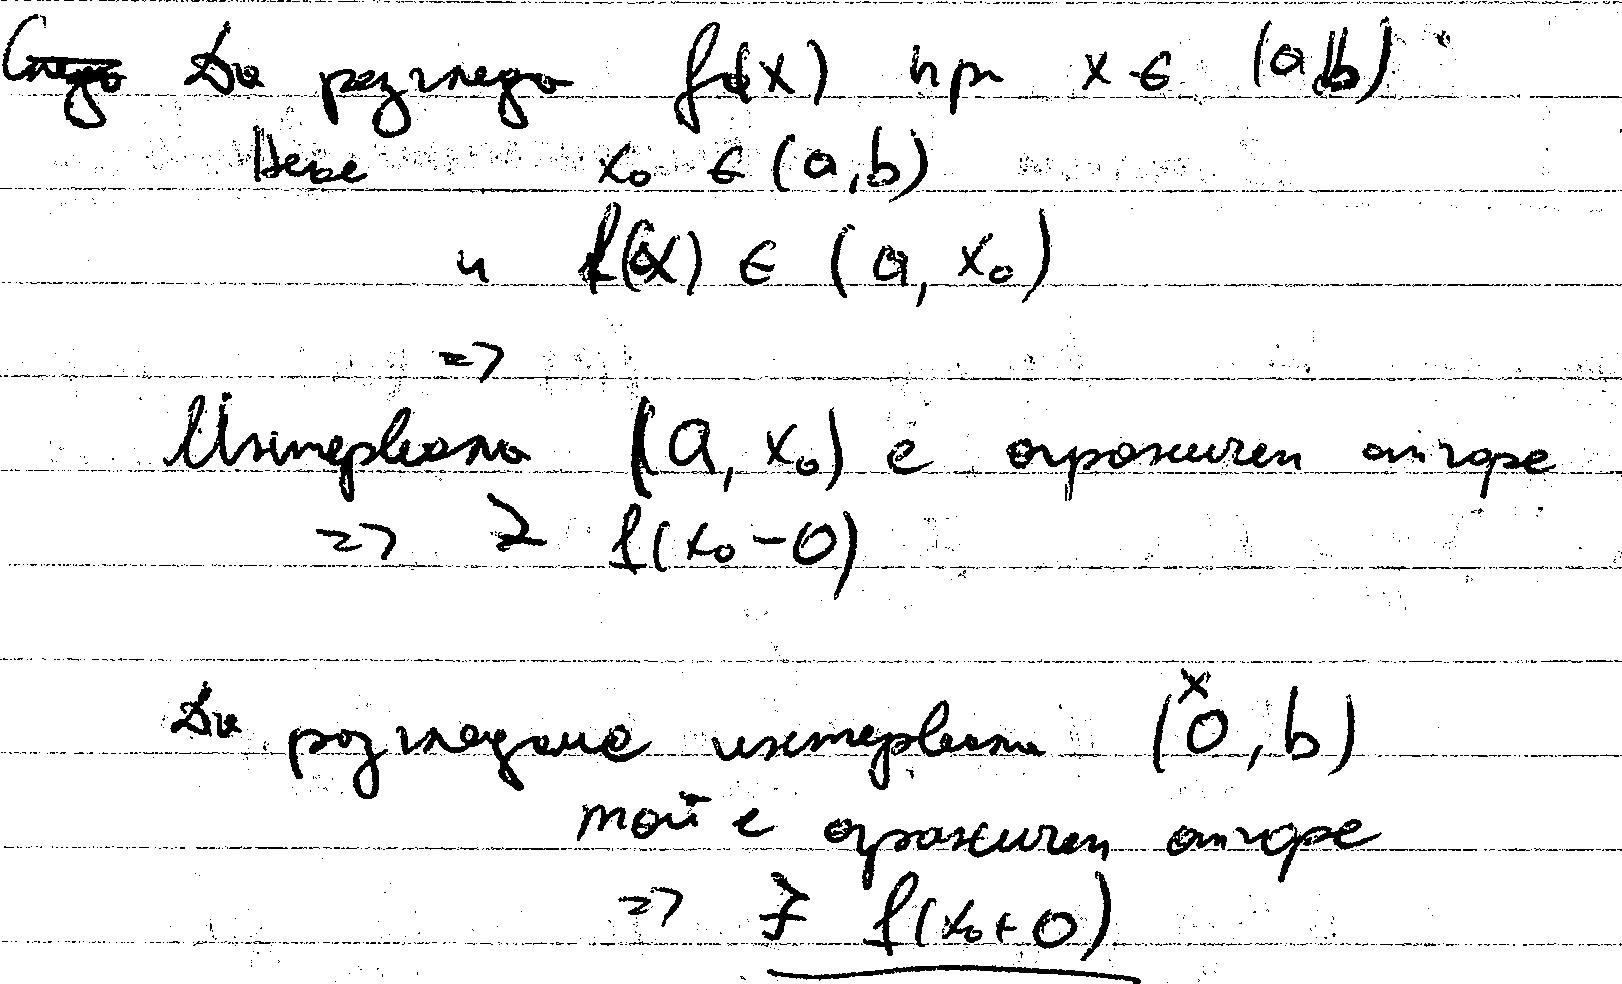 Да разгледа f(x) при x ∈ (a,b)
Нека x₀ ∈ (a,b)
и f(x) ∈ (a, x₀)
=>
Интервала (a, x₀) е ограничен отгоре
=> ∃ f(x₀-0)
Да разгледаме интервала (x0, b)
той е ограничен отгоре
=> ∃ f(x₀+0)